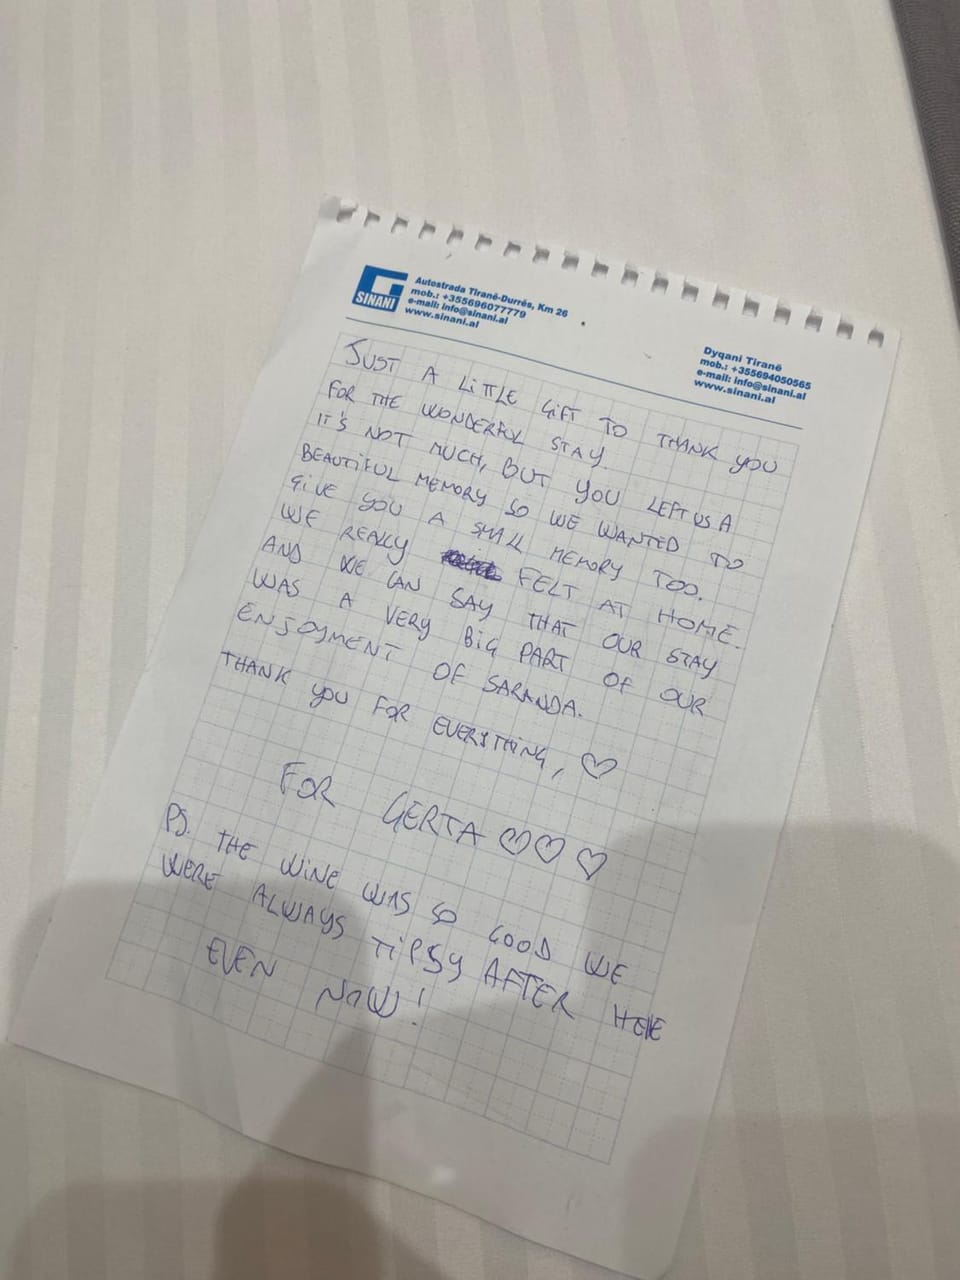 SINANI
Autostrada Tiranë-Durrës, Km 26
mob.: +355696077779
e-mail: info@sinani.al
www.sinani.al
Dyqani Tiranë
mob.: +355694050565
e-mail: info@sinani.al
www.sinani.al
JUST A LITTLE GIFT TO THANK YOU
FOR THE WONDERFUL STAY.
IT'S NOT MUCH, BUT YOU LEFT US A
BEAUTIFUL MEMORY SO WE WANTED TO
GIVE YOU A SMALL MEMORY TOO.
WE REALLY FELT AT HOME.
AND WE CAN SAY THAT OUR STAY
WAS A VERY BIG PART OF OUR
ENJOYMENT OF SARANDA.
THANK YOU FOR EVERYTHING, ♡
FOR GERTA ♡♡♡
PS. THE WINE WAS SO GOOD WE
WERE ALWAYS TIPSY AFTER HERE
EVEN NOW!